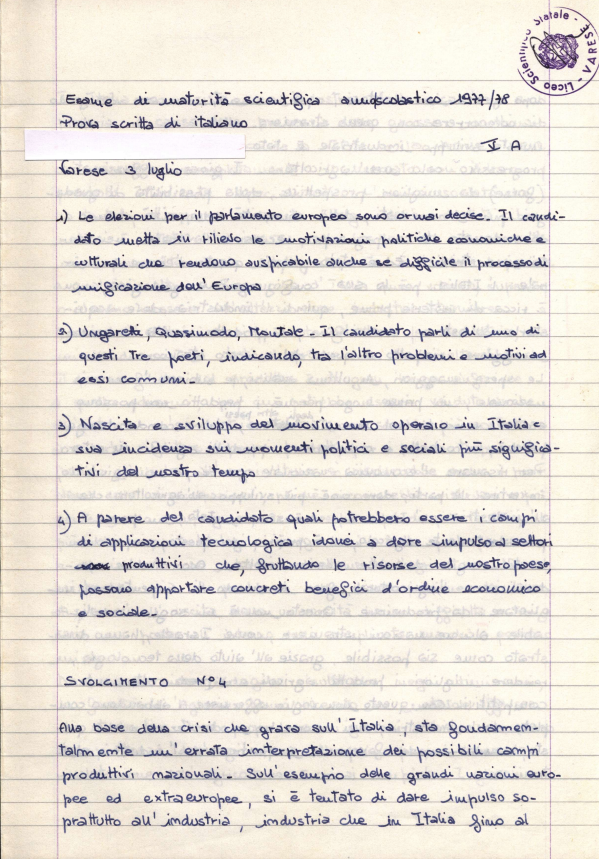 Liceo Scientifico Statale - VARESE
Esame di maturità scientifica annoscolastico 1977/78
Prova scritta di italiano
V A
Varese 3 luglio
1) Le elezioni per il parlamento europeo sono ormai decise. Il candi-
dato metta in rilievo le motivazioni politiche economiche e
culturali che rendono auspicabile anche se difficile il processo di
unificazione dell'Europa
2) Ungaretti, Quasimodo, Montale - Il candidato parli di uno di
questi tre poeti, indicando, tra l'altro problemi e motivi ad
essi comuni.
3) Nascita e sviluppo del movimento operaio in Italia e
sua incidenza sui momenti politici e sociali più significa-
tivi del nostro tempo
4) A parere del candidato quali potrebbero essere i campi
di applicazioni tecnologica idonei a dare impulso ai settori
produttivi che, fruttando le risorse del nostro paese,
possano apportare concreti benefici d'ordine economico
e sociale.
SVOLGIMENTO N°4
Alla base della crisi che grava sull'Italia, sta fondamen-
talmente un'errata interpretazione dei possibili campi
produttivi nazionali. Sull'esempio delle grandi nazioni euro-
pee ed extraeuropee, si è tentato di dare impulso so-
prattutto all'industria, industria che in Italia fino al